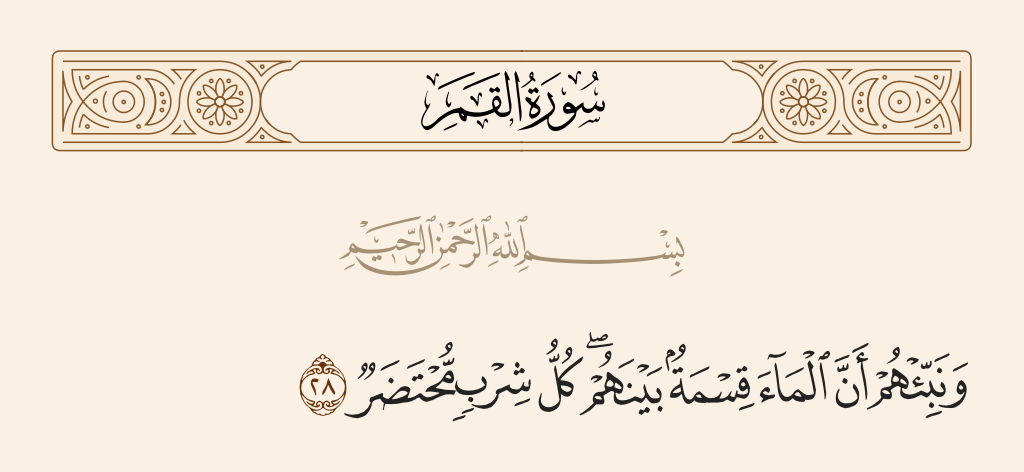 سُورَةُ القَمَرِ
بِسْمِ ٱللَّهِ ٱلرَّحْمَٰنِ ٱلرَّحِيمِ
وَنَبِّئْهُمْ أَنَّ ٱلْمَآءَ قِسْمَةٌۢ بَيْنَهُمْ ۖ كُلُّ شِرْبٍ مُّحْتَضَرٌ ٢٨